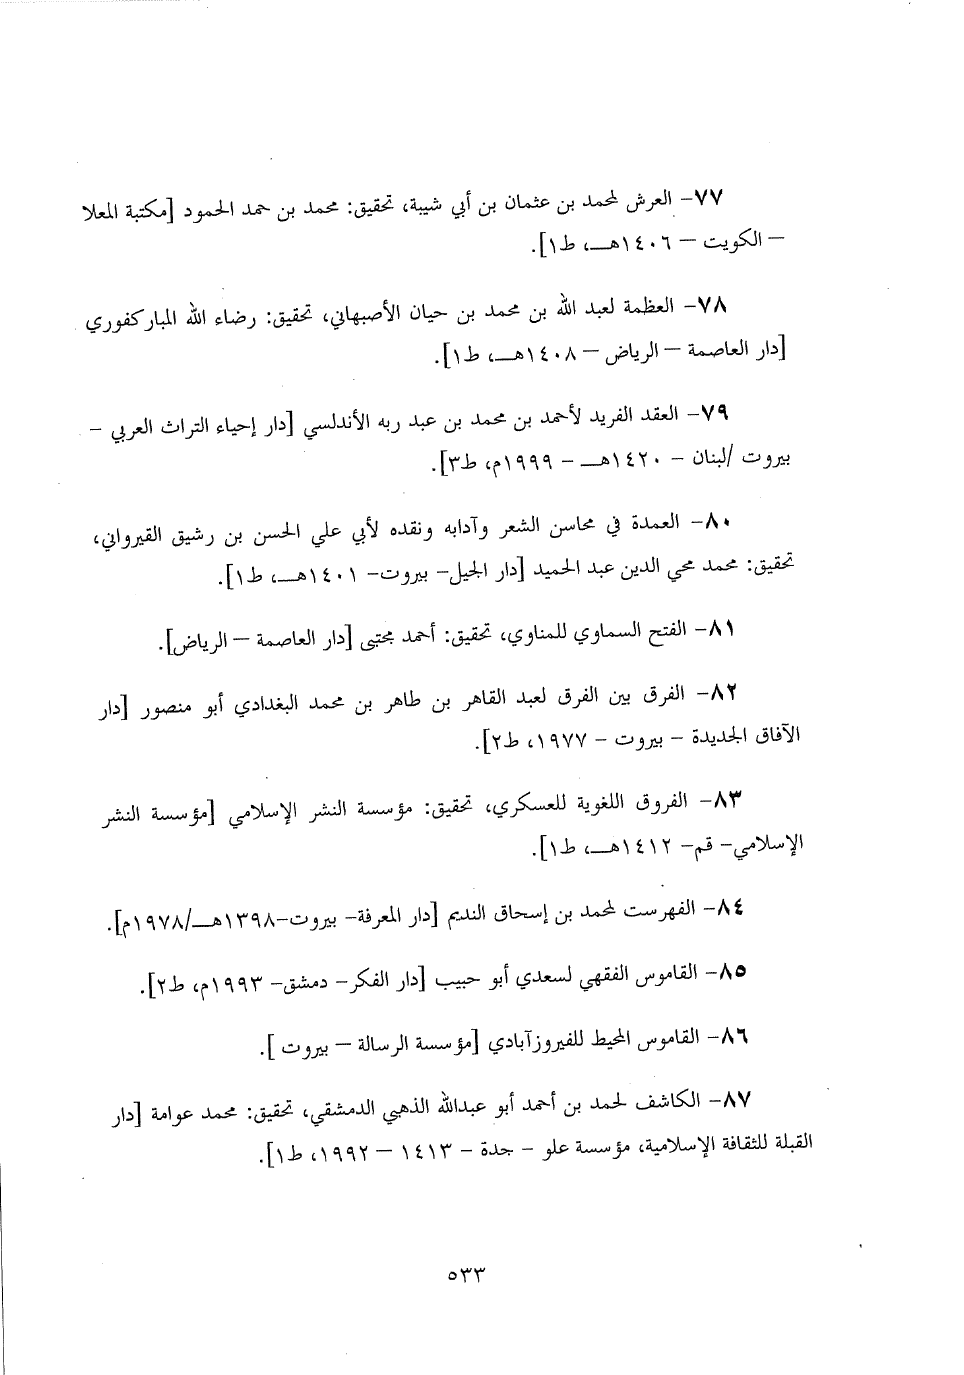 ٧٧– العرش لمحمد بن عثمان بن أبي شيبة، تحقيق: محمد بن حمد الحمود [مكتبة المعلا
– الكويت – ١٤٠٦هـ، ط١].
٧٨– العظمة لعبد الله بن محمد بن حيان الأصبهاني، تحقيق: رضاء الله المباركفوري
[دار العاصمة – الرياض – ١٤٠٨هـ، ط١].
٧٩– العقد الفريد لأحمد بن محمد بن عبد ربه الأندلسي [دار إحياء التراث العربي –
بيروت /لبنان – ١٤٢٠هـ – ١٩٩٩م، ط٣].
٨٠– العمدة في محاسن الشعر وآدابه ونقده لأبي علي الحسن بن رشيق القيرواني،
تحقيق: محمد محي الدين عبد الحميد [دار الجيل– بيروت– ١٤٠١هـ، ط١].
٨١– الفتح السماوي للمناوي، تحقيق: أحمد مجتبى [دار العاصمة – الرياض].
٨٢– الفرق بين الفرق لعبد القاهر بن طاهر بن محمد البغدادي أبو منصور [دار
الآفاق الجديدة – بيروت – ١٩٧٧، ط٢].
٨٣– الفروق اللغوية للعسكري، تحقيق: مؤسسة النشر الإسلامي [مؤسسة النشر
الإسلامي– قم– ١٤١٢هـ، ط١].
٨٤– الفهرست لمحمد بن إسحاق النديم [دار المعرفة– بيروت–١٣٩٨هـ/١٩٧٨م].
٨٥– القاموس الفقهي لسعدي أبو حبيب [دار الفكر– دمشق– ١٩٩٣م، ط٢].
٨٦– القاموس المحيط للفيروزآبادي [مؤسسة الرسالة – بيروت ].
٨٧– الكاشف لحمد بن أحمد أبو عبدالله الذهبي الدمشقي، تحقيق: محمد عوامة [دار
القبلة للثقافة الإسلامية، مؤسسة علو – جدة – ١٤١٣ – ١٩٩٢، ط١].
٥٣٣